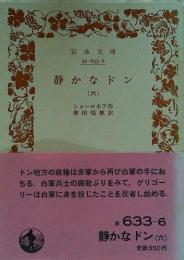 岩波文庫
32-633-6
静かなドン
(六)
ショーロホフ作
横田瑞穂訳
ドン地方の政権は赤軍から再び白軍の手にお
ちる。白軍兵士の腐敗ぶりをみて、グリゴー
リーは白軍に身を投じたことを反省し始める.
赤 633-6
静かなドン(六)
定価550円